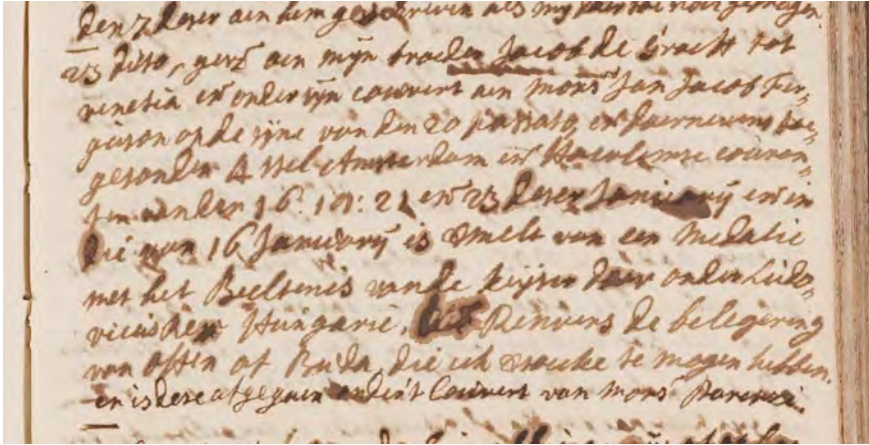 den 7 deser aen hem geschreven als mij
23 dito, gesz aen mijn broeder Jacob de Graeff tot
venetia en onder sijn couvert aen Mons.r Jan Jacob Fer,,
guson op de sijne van den 20 passato, en daernevens toe,,
gesonden 4 stel Amsterdam en Haerlemse couran,,
ten van den 16: 19: 21 en 23 deser Januarij en in
die van 16 Januarij is van een Medalie
met het Beeltenis vande keijser daer onder Ludo,,
vicus Rex Hungarie, Renvers de belegering
van Offen of Buda, die ick te mogen hebben.
en is dese afgegaen onder 't Couvert van Mons.r